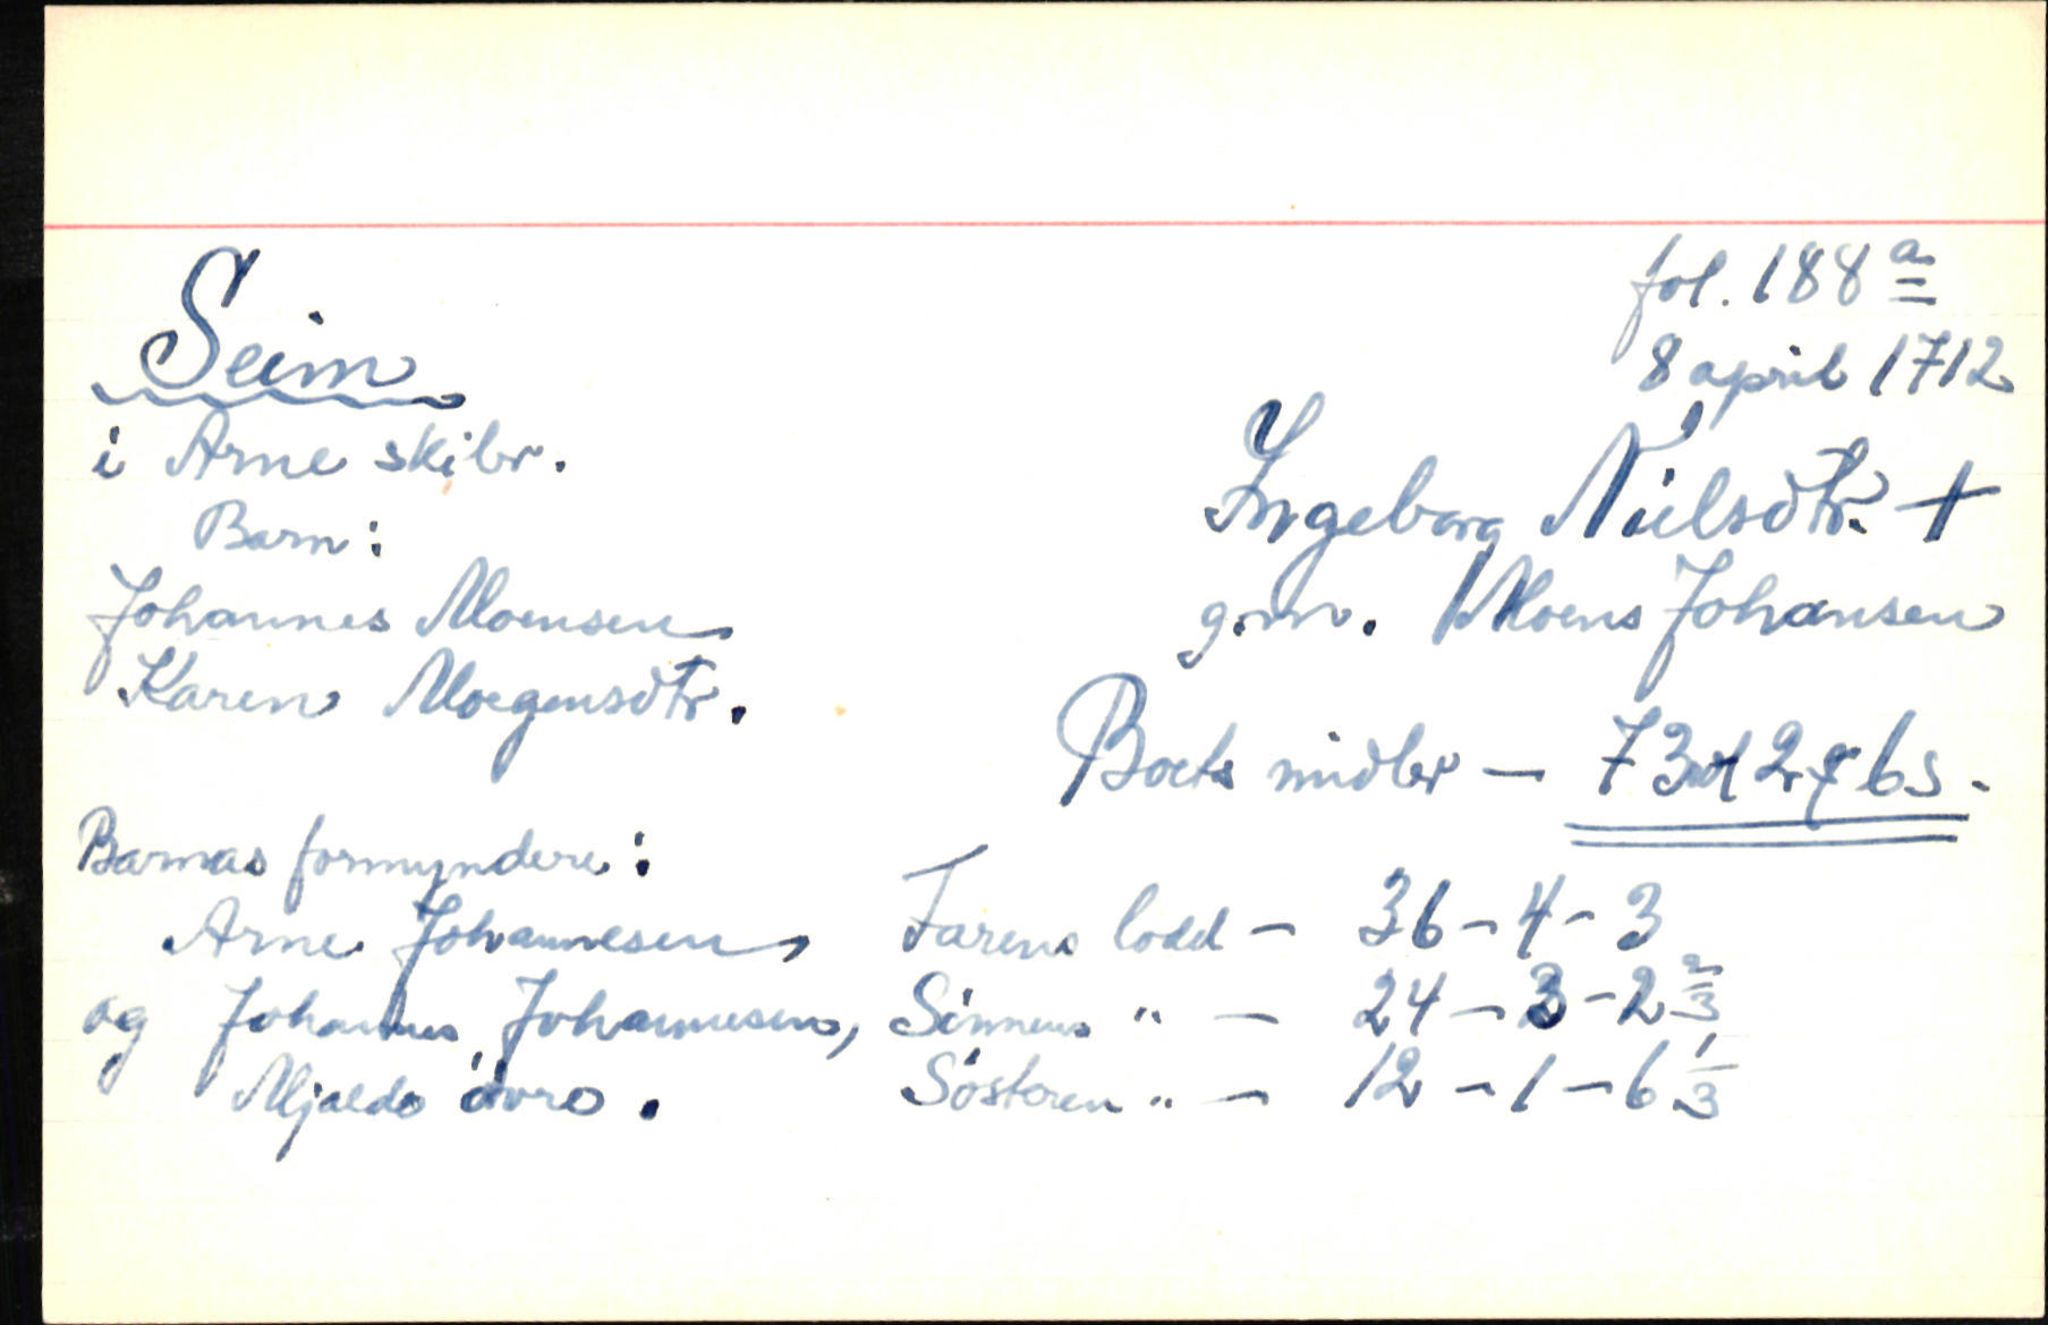 fol. 188 a
8 april 1712
Seim
i Arne skibr.
Barn:
Johannes Monsen
Karen Mogensdtr.
Ingeborg Nielsdtr. +
g.m. Moens Johansen
Boets midler — 73 rd 2 # 6 s.
Barnas formyndere:
Arne Johannesen,
og Johannes Johannesen,
Mjelde øvre.
Farens lodd — 36 - 4 - 3
Sönnens " — 24 - 3 - 2 2/3
Søsteren " — 12 - 1 - 6 1/3